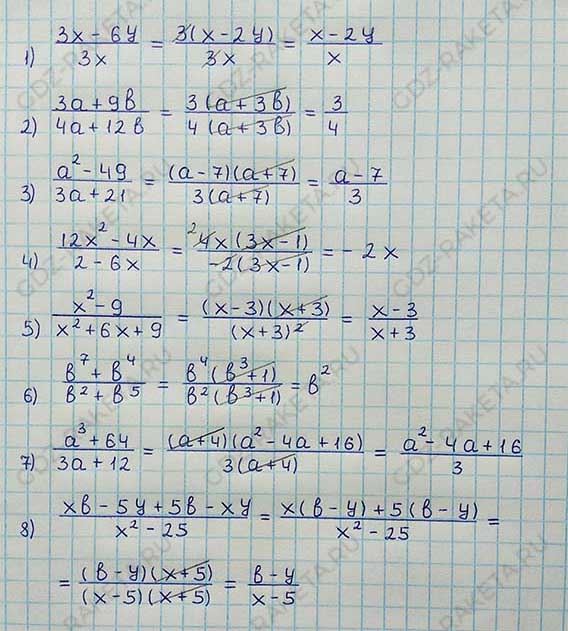 1) (3x - 6y)/(3x) = (3(x - 2y))/(3x) = (x - 2y)/x
2) (3a + 9в)/(4a + 12в) = (3(a + 3в))/(4(a + 3в)) = 3/4
3) (a² - 49)/(3a + 21) = ((a - 7)(a + 7))/(3(a + 7)) = (a - 7)/3
4) (12x² - 4x)/(2 - 6x) = (²4x(3x - 1))/(-2(3x - 1)) = - 2x
5) (x² - 9)/(x² + 6x + 9) = ((x - 3)(x + 3))/((x + 3)²) = (x - 3)/(x + 3)
6) (в⁷ + в⁴)/(в² + в⁵) = (в⁴(в³ + 1))/(в²(в³ + 1)) = в²
7) (a³ + 64)/(3a + 12) = ((a + 4)(a² - 4a + 16))/(3(a + 4)) = (a² - 4a + 16)/3
8) (xв - 5y + 5в - xy)/(x² - 25) = (x(в - y) + 5(в - y))/(x² - 25) =
= ((в - y)(x + 5))/((x - 5)(x + 5)) = (в - y)/(x - 5)
GDZ-RAKETA.RU